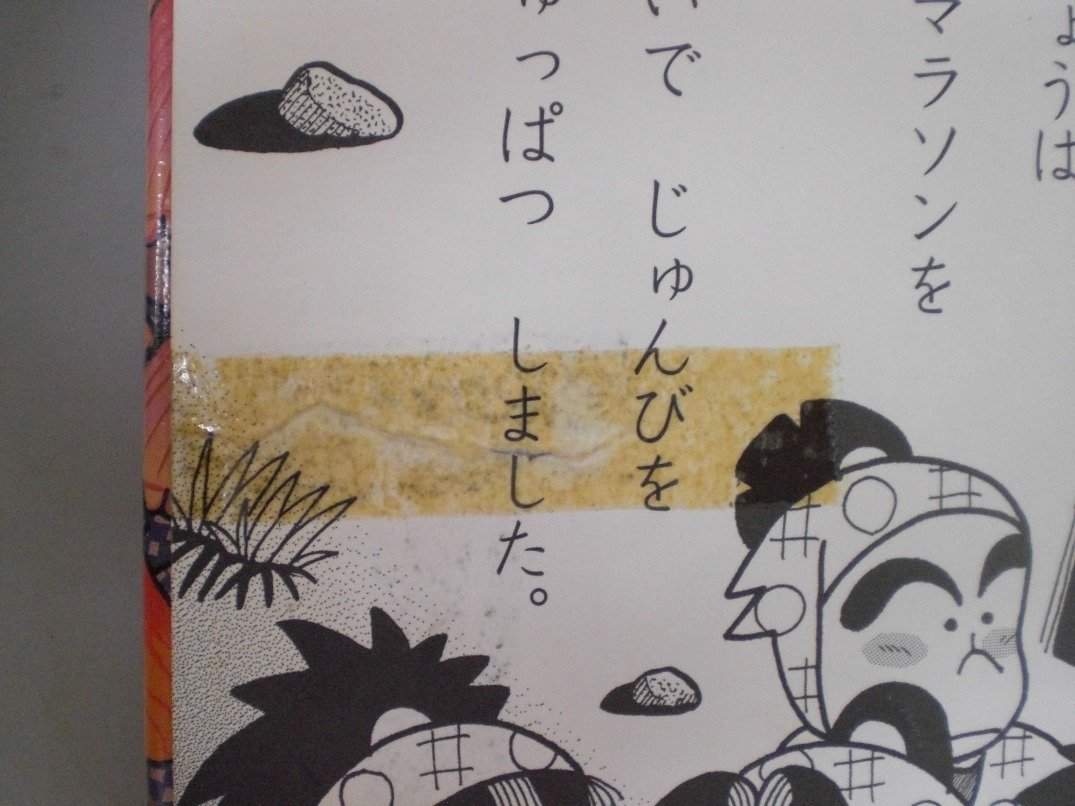 ょうは
マラソンを
いで じゅんびを
ゅっぱつ しました。